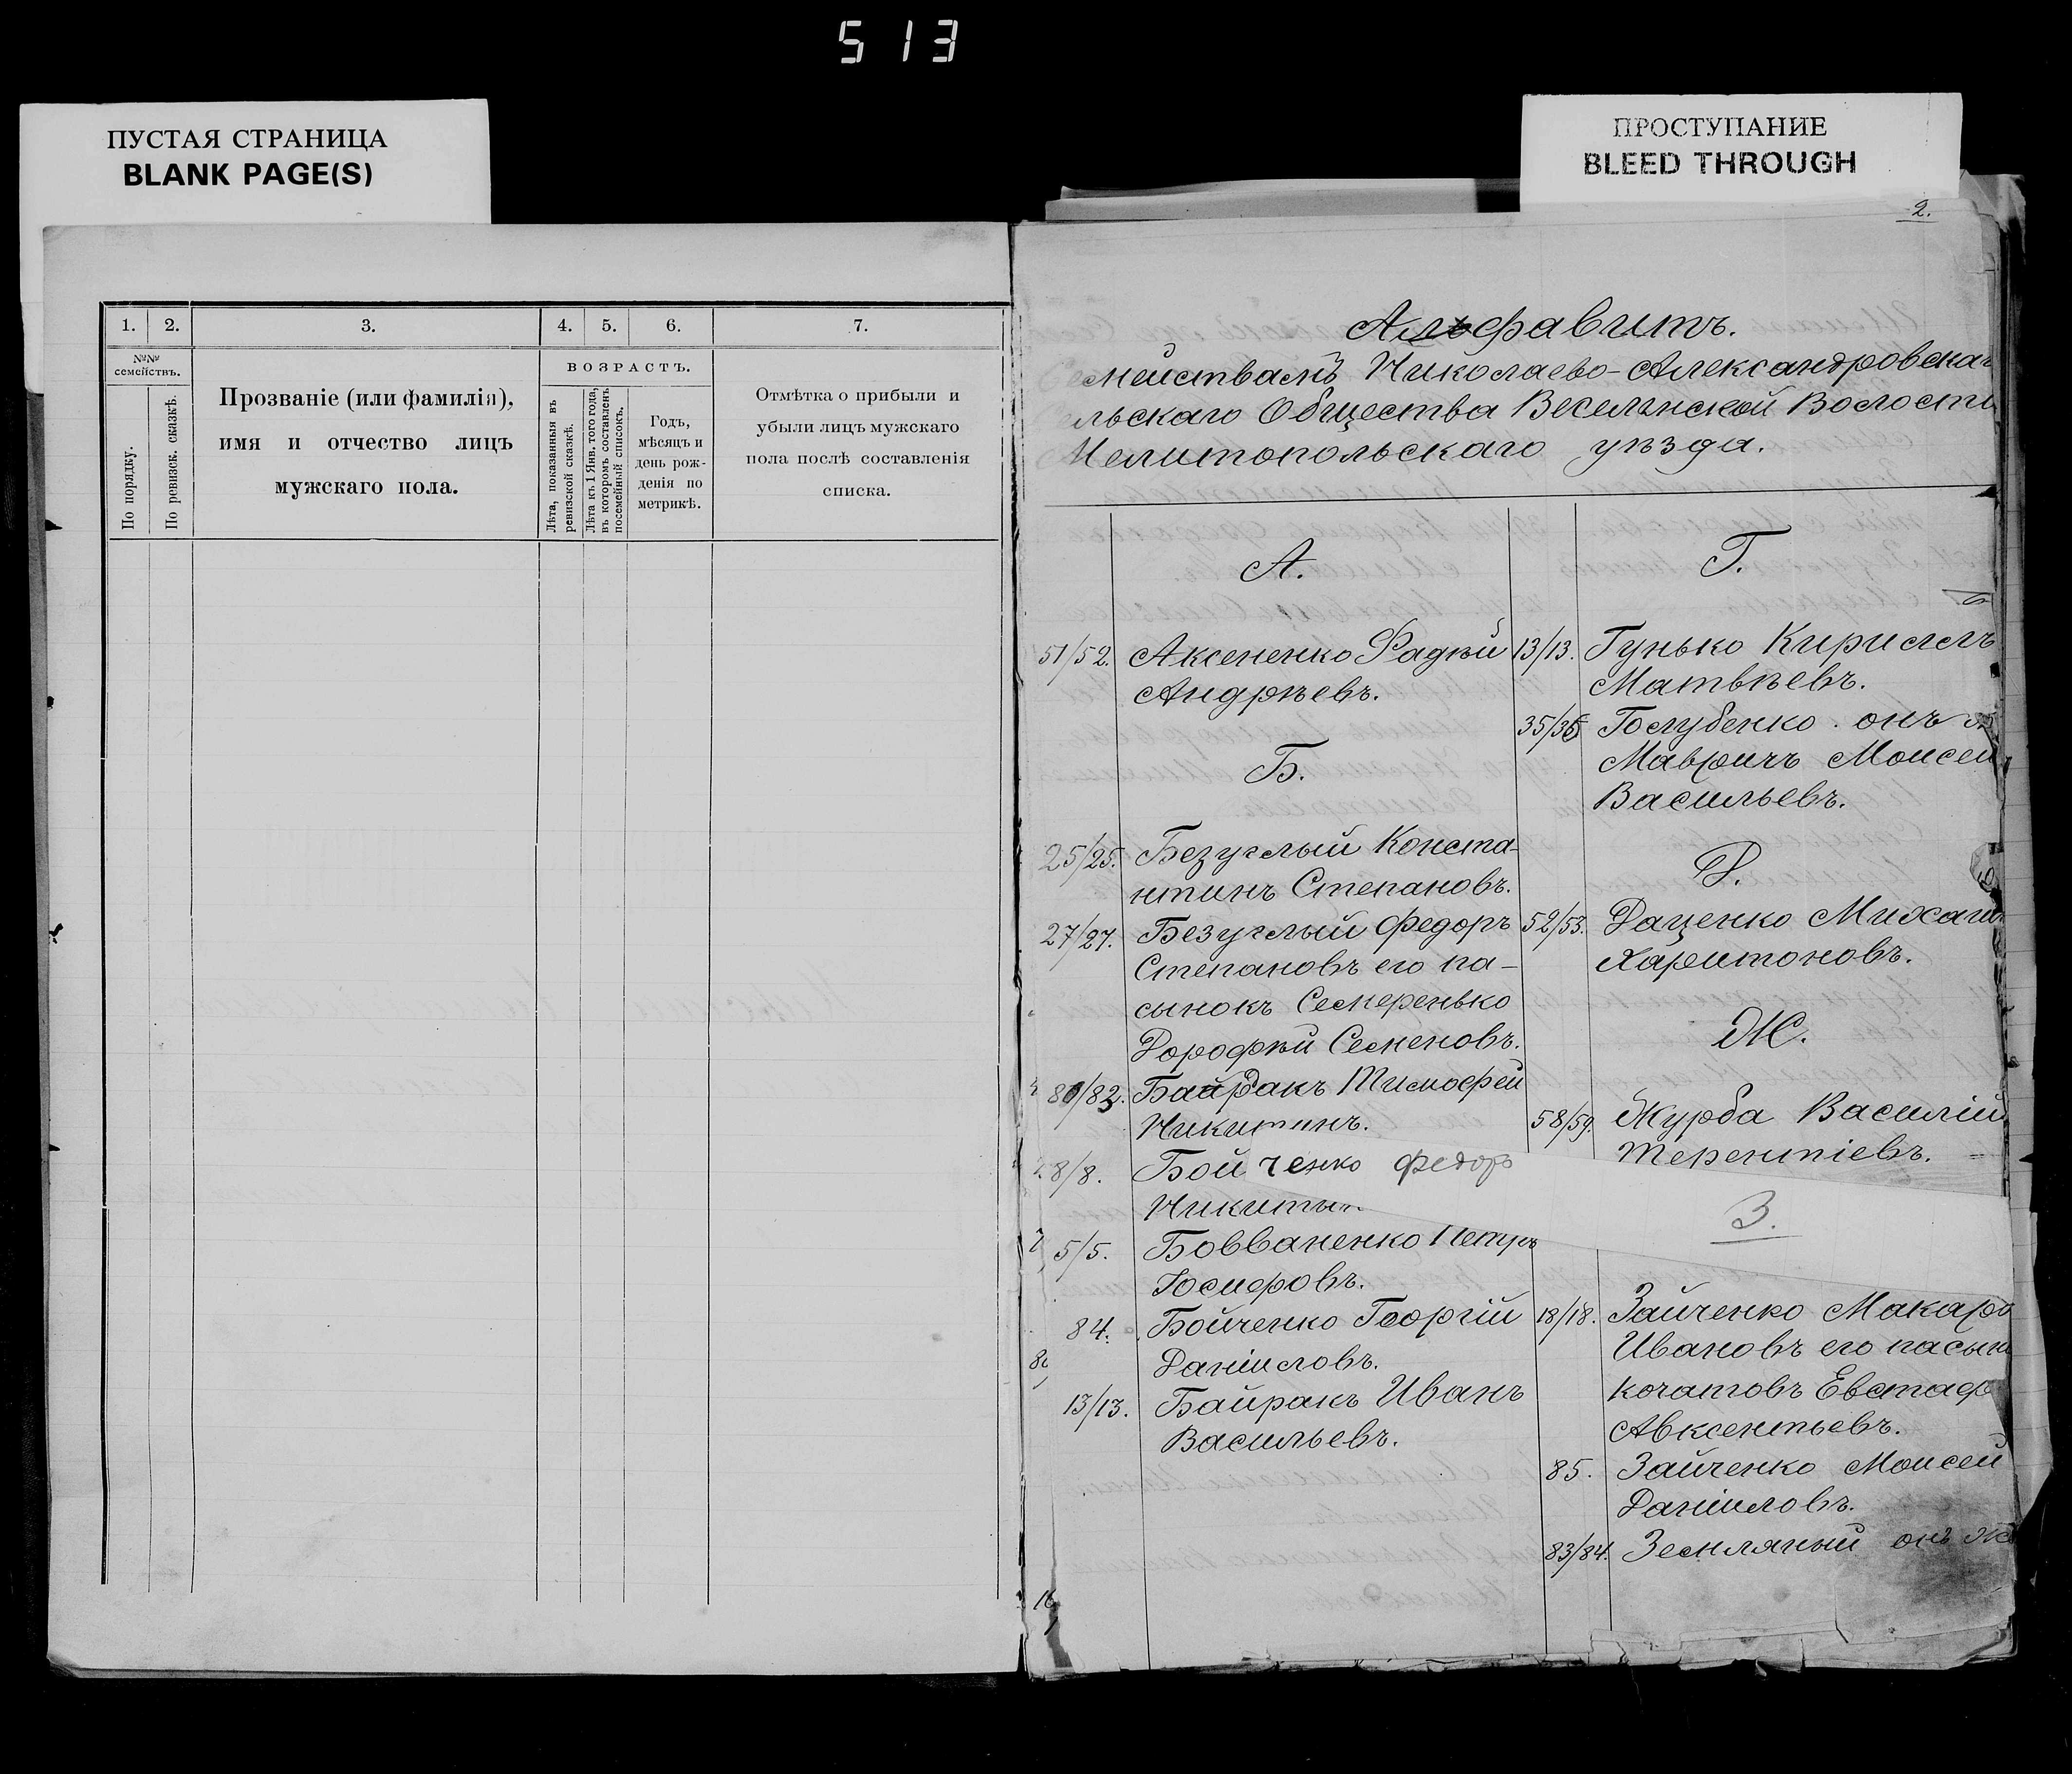 513
ПУСТАЯ СТРАНИЦА
BLANK PAGE(S)
ПРОСТУПАНИЕ
BLEED THROUGH
1.
2.
3.
4.
5.
6.
7.
№№
семействъ.
По порядку.
По ревизск. сказкѣ.
Прозваніе (или фамилія),
имя и отчество лицъ
мужскаго пола.
ВОЗРАСТЪ.
Лѣта, показанныя въ
ревизской сказкѣ.
Лѣта къ 1 Янв. того года,
въ которомъ составленъ
посемейный списокъ.
Годъ,
мѣсяцъ и
день рож-
денія по
метрикѣ.
Отмѣтка о прибыли и
убыли лицъ мужскаго
пола послѣ составленія
списка.
2.
Альфавитъ.
мействамъ Николаево-Александровска
льскаго Общества Веселѣнской Волости
Мелитопольскаго уѣзда.
А.
51/52. Аксененко Фадѣй
Андрѣевъ.
Б.
25/25. Безуглый Конста-
нтинъ Степановъ.
27/27. Безуглый Федоръ
Степановъ его па-
сынокъ Семеренько
Дорофѣй Семеновъ.
80/82. Байракъ Тимофей
Никитинъ.
8/8. Бойченко Федоръ
Никитин
5/5. Бовваненко Петръ
Іосифовъ.
84. Бойченко Георгій
Даніиловъ.
13/13. Байракъ Иванъ
Васильевъ.
Г.
13/13. Гунько Кириллъ
Матвѣевъ.
35/36 Голубенко онъ
Мавричъ Моисей
Васильевъ.
Д.
52/53. Даценко Михаил
Харитоновъ.
Ж.
58/59. Журба Василій
Терентіевъ.
З.
18/18. Зайченко Макаръ
Ивановъ его пасын
Кочатовъ Евстаф
Авксентьевъ.
85. Зайченко Моисей
Даніиловъ.
83/84. Земляный онъ ж